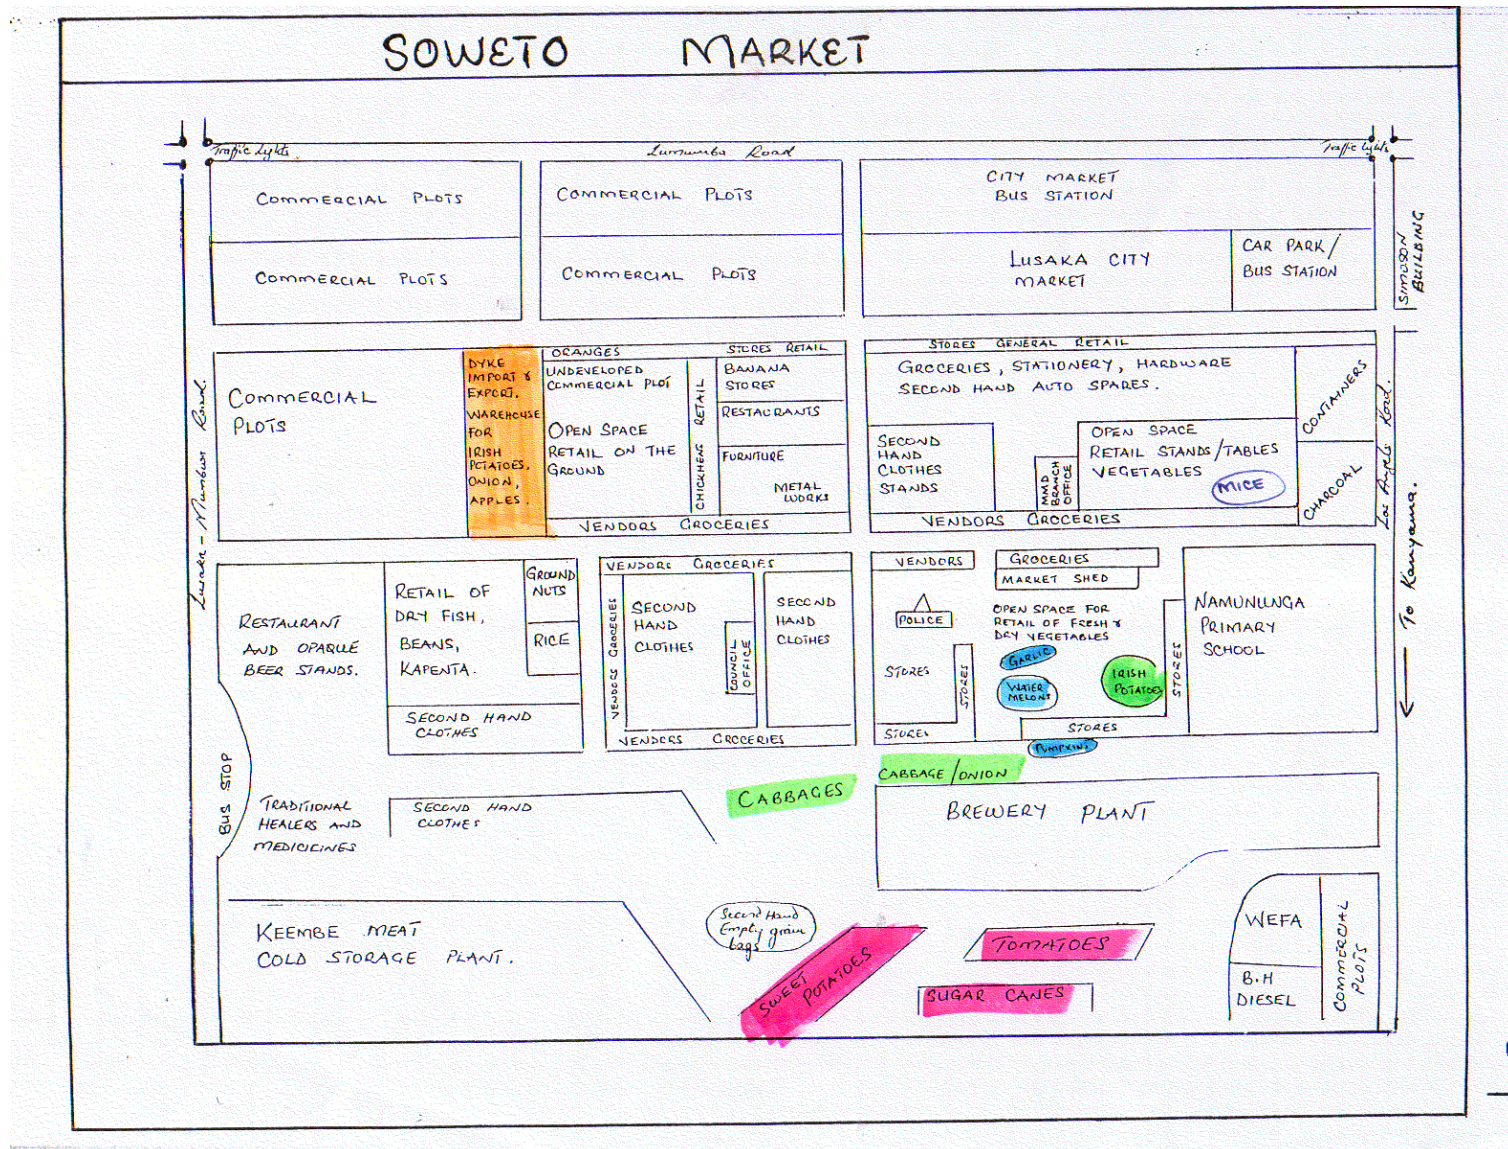 SOWETO MARKET
Traffic Lights
Lumumba Road
Traffic Lights
COMMERCIAL PLOTS
COMMERCIAL PLOTS
CITY MARKET
BUS STATION
COMMERCIAL PLOTS
COMMERCIAL PLOTS
LUSAKA CITY
MARKET
CAR PARK/
BUS STATION
SIMOSON
BUILBING
Lusaka - Mumbwa Road.
COMMERCIAL
PLOTS
DYKE
IMPORT &
EXPORT.
WAREHOUSE
FOR
IRISH
POTATOES,
ONION,
APPLES.
ORANGES
UNDEVELOPED
COMMERCIAL PLOT
OPEN SPACE
RETAIL ON THE
GROUND
CHICKHENS RETAIL
STORES RETAIL
BANANA
STORES
RESTAURANTS
FURNITURE
METAL
WORKS
VENDORS GROCERIES
STORES GENERAL RETAIL
GROCERIES, STATIONERY, HARDWARE
SECOND HAND AUTO SPARES.
SECOND
HAND
CLOTHES
STANDS
MMD
BRANCH
OFFICE
OPEN SPACE
RETAIL STANDS/TABLES
VEGETABLES
MICE
CONTAINERS
CHARCOAL
VENDORS GROCERIES
Los Angels Road.
To Kanyama.
RESTAURANT
AND OPAQUE
BEER STANDS.
RETAIL OF
DRY FISH,
BEANS,
KAPENTA.
GROUND
NUTS
RICE
SECOND HAND
CLOTHES
VENDORS GROCERIES
VENDORS GROCERIES
SECOND
HAND
CLOTHES
COUNCIL
OFFICE
SECOND
HAND
CLOTHES
VENDORS GROCERIES
VENDORS
POLICE
STORES
STORES
STORES
GROCERIES
MARKET SHED
OPEN SPACE FOR
RETAIL OF FRESH &
DRY VEGETABLES
GARLIC
WATER
MELONS
IRISH
POTATOES
STORES
STORES
PUMPKINS
NAMUNUNGA
PRIMARY
SCHOOL
BUS STOP
TRADITIONAL
HEALERS AND
MEDICICINES
SECOND HAND
CLOTHES
CABBAGES
CABBAGE/ONION
BREWERY PLANT
KEEMBE MEAT
COLD STORAGE PLANT.
Second Hand
Empty grain
bags
SWEET
POTATOES
TOMATOES
SUGAR CANES
WEFA
B.H
DIESEL
COMMERCIAL
PLOTS